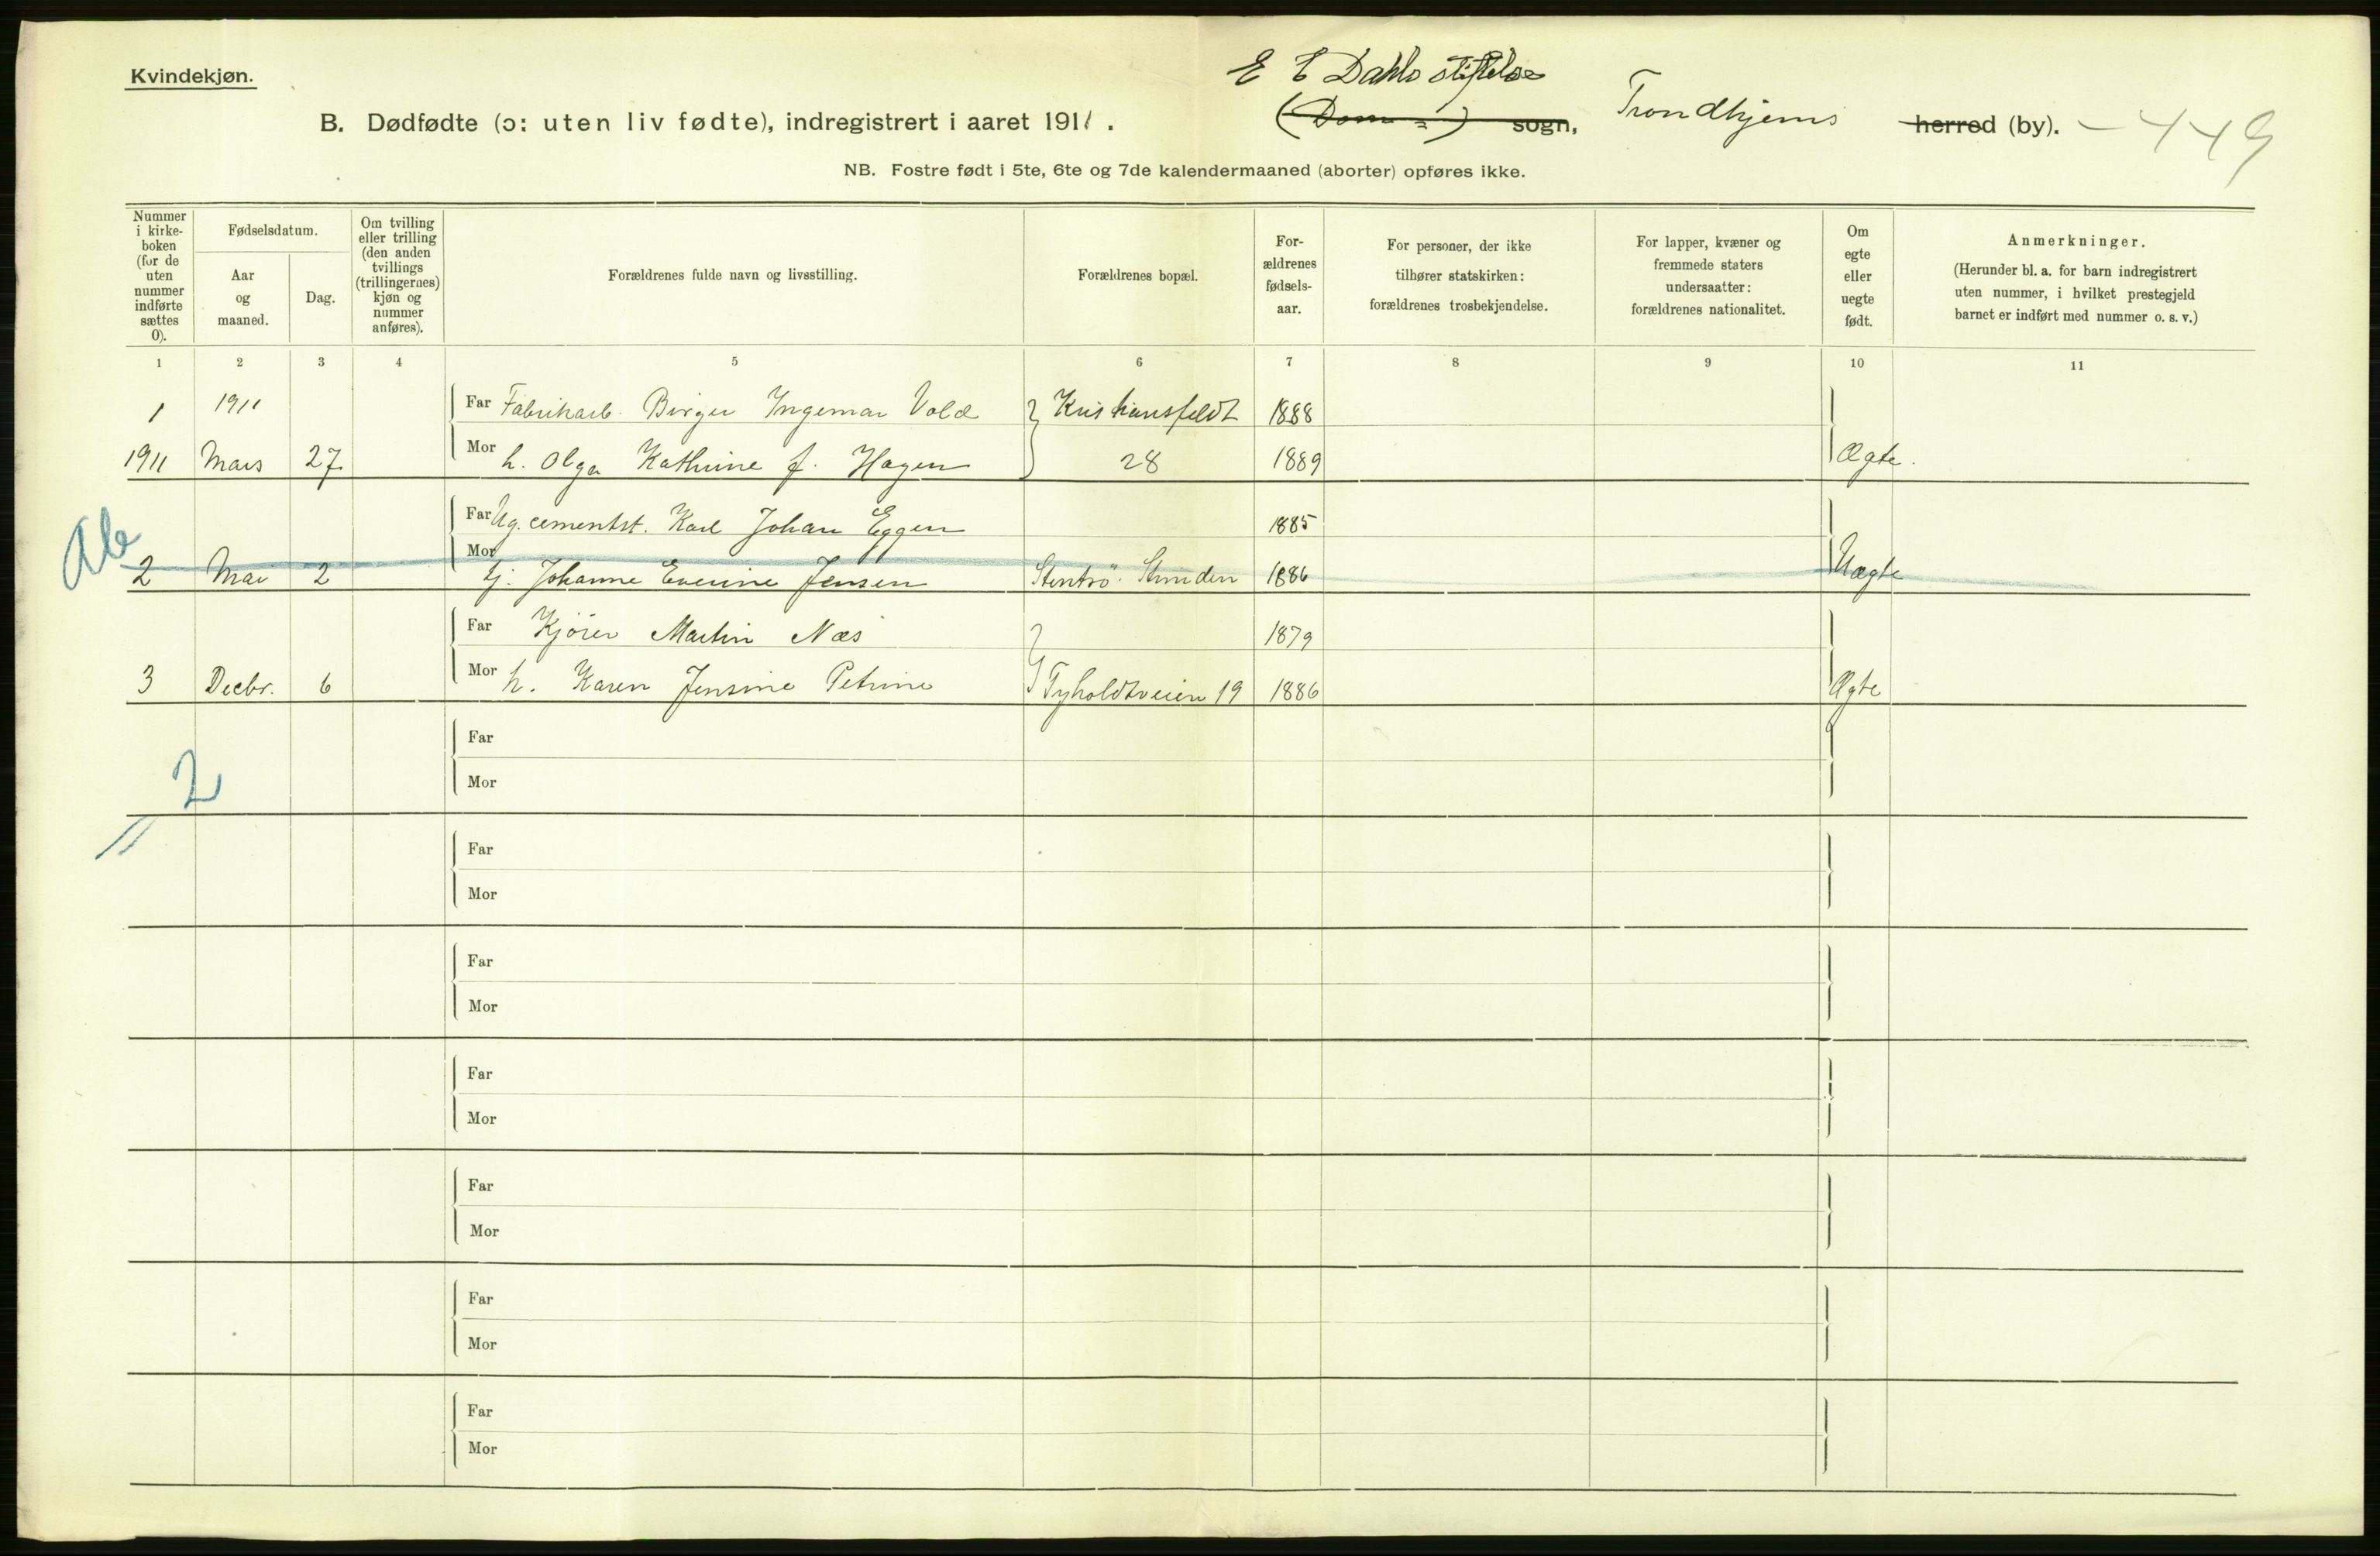 Kvindekjøn.
E C Dahls stiftelse
B. Dødfødte (ɔ: uten liv fødte), indregistrert i aaret 1911.
(Dom =) sogn, Trondhjems herred (by). – 449
NB. Fostre født i 5te, 6te og 7de kalendermaaned (aborter) opføres ikke.
Nummer i kirke-boken (for de uten nummer indførte sættes 0).
Fødselsdatum.
Aar og maaned.
Dag.
Om tvilling eller trilling (den anden tvillings (trillingernes) kjøn og nummer anføres).
Forældrenes fulde navn og livsstilling.
Forældrenes bopæl.
For-ældrenes fødsels-aar.
For personer, der ikke tilhører statskirken: forældrenes trosbekjendelse.
For lapper, kvæner og fremmede staters undersaatter: forældrenes nationalitet.
Om egte eller uegte født.
Anmerkninger.
(Herunder bl. a. for barn indregistrert uten nummer, i hvilket prestegjeld barnet er indført med nummer o. s. v.)
1 2 3 4 5 6 7 8 9 10 11
1 1911 Far Fabrikarb. Birger Ingemar Vold Kristiansfeldt 1888
1911 Mars 27 Mor h. Olga Kathrine f. Hagen 28 1889 Ægte.
Far Ug. cementst. Karl Johan Eggen 1885
2 Mai 2 Mor tj. Johanne Evenine Jensen 1886 Uægte
Far Kjører Martin Næs 1879
3 Decbr. 6 Mor h. Karen Jensine Petrine Tyholdtveien 19 1886 Ægte
Far
2
Mor
Far
Mor
Far
Mor
Far
Mor
Far
Mor
Far
Mor
Far
Mor